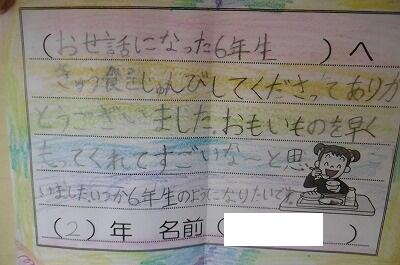 (おせ話になった6年生)へ
きゅう食をじゅんびしてくださってありが
とうございました。おもいものを早く
もってくれてすごいな〜と思い
いましたいつか6年生のようになりたいです。
(2)年 名前()